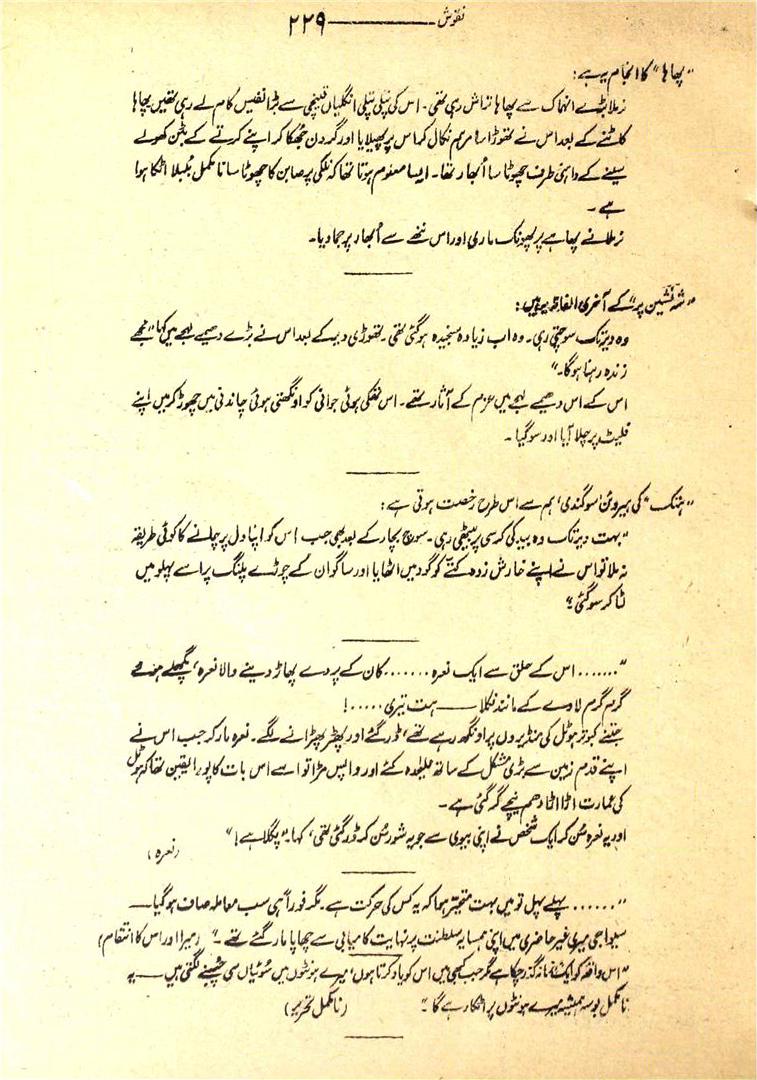 نقوش ——— ۲۲۹
"پھاہا" کا انجام یہ ہے:
نرملا بڑے انہماک سے پھاہا تراش رہی تھی۔ اس کی پتلی پتلی انگلیاں قینچی سے بڑا نفیس کام لے رہی تھیں پھاہا
کاٹنے کے بعد اس نے تھوڑا سا مرہم نکال کر اس پر پھیلایا اور گردن جھکا کر اپنے کرتے کے بٹن کھولے
سینے کے داہنی طرف چھوٹا سا اُبھار تھا۔ ایسا معلوم ہوتا تھا کہ نلکی پر صابن کا چھوٹا سا نا مکمل بُلبلا اٹکا ہوا
ہے۔
نرملا نے پھاہے پر پھونک ماری اور اس ننھے سے اُبھار پر جما دیا۔
"شہ نشین پر" کے آخری الفاظ یہ ہیں:
وہ دیر تک سوچتی رہی۔ وہ اب زیادہ سنجیدہ ہو گئی تھی۔ تھوڑی دیر کے بعد اس نے بڑے دھیمے لہجے میں کہا "مجھے
زندہ رہنا ہوگا۔"
اس کے اس دھیمے لہجے میں عزم کے آثار تھے۔ اس تھکی ہوئی جوانی کو اونگھتی ہوئی چاندنی میں چھوڑ کر میں اپنے
فلیٹ پر چلا آیا اور سو گیا۔
"ہتک" کی ہیروئن 'سوگندی' ہم سے اس طرح رخصت ہوتی ہے:
"بہت دیر تک وہ بید کی کرسی پر بیٹھی رہی۔ سوچ بچار کے بعد بھی جب اس کو اپنا دل پرچانے کا کوئی طریقہ
نہ ملا تو اس نے اپنے خارش زدہ کتے کو گود میں اٹھایا اور ساگوان کے چوڑے پلنگ پر اسے پہلو میں
لٹا کر سو گئی۔"
"....... اس کے حلق سے ایک نعرہ ....... کان کے پردے پھاڑ دینے والا نعرہ، پگھلے ہوئے
گرم گرم لاوے کے مانند نکلا —— ہت تیری .....!
جتنے کبوتر ہوٹل کی منڈیروں پر اونگھ رہے تھے، ڈر گئے اور پھڑپھڑانے لگے۔ نعرہ مار کر جب اس نے
اپنے قدم زمین سے بڑی مشکل کے ساتھ علیٰحدہ کئے اور واپس مڑا تو اسے اس بات کا پورا یقین تھا کہ ہوٹل
کی عمارت اڑا اڑا دھم نیچے گر گئی ہے۔
اور یہ نعرہ سُن کر ایک شخص نے اپنی بیوی سے جو یہ شور سُن کر ڈر گئی تھی، کہا۔ "پگلا ہے!"
(نعرہ)
"...... پہلے پہل تو میں بہت متحیر ہوا کہ یہ کس کی حرکت ہے۔ مگر فوراً ہی سب معاملہ صاف ہو گیا——
سیواجی میری غیر حاضری میں اپنی ہمسایہ سلطنت پر نہایت کامیابی سے چھاپا مار گئے تھے۔" (میرا اور اس کا انتقام)
"اس واقعہ کو ایک زمانہ گذر چکا ہے مگر جب کبھی میں اس کو یاد کرتا ہوں، میرے ہونٹوں میں سوئیاں سی چبھنے لگتی ہیں —— یہ
نا مکمل بوسہ ہمیشہ میرے ہونٹوں پر اٹکا رہے گا۔" (نا مکمل تحریر)